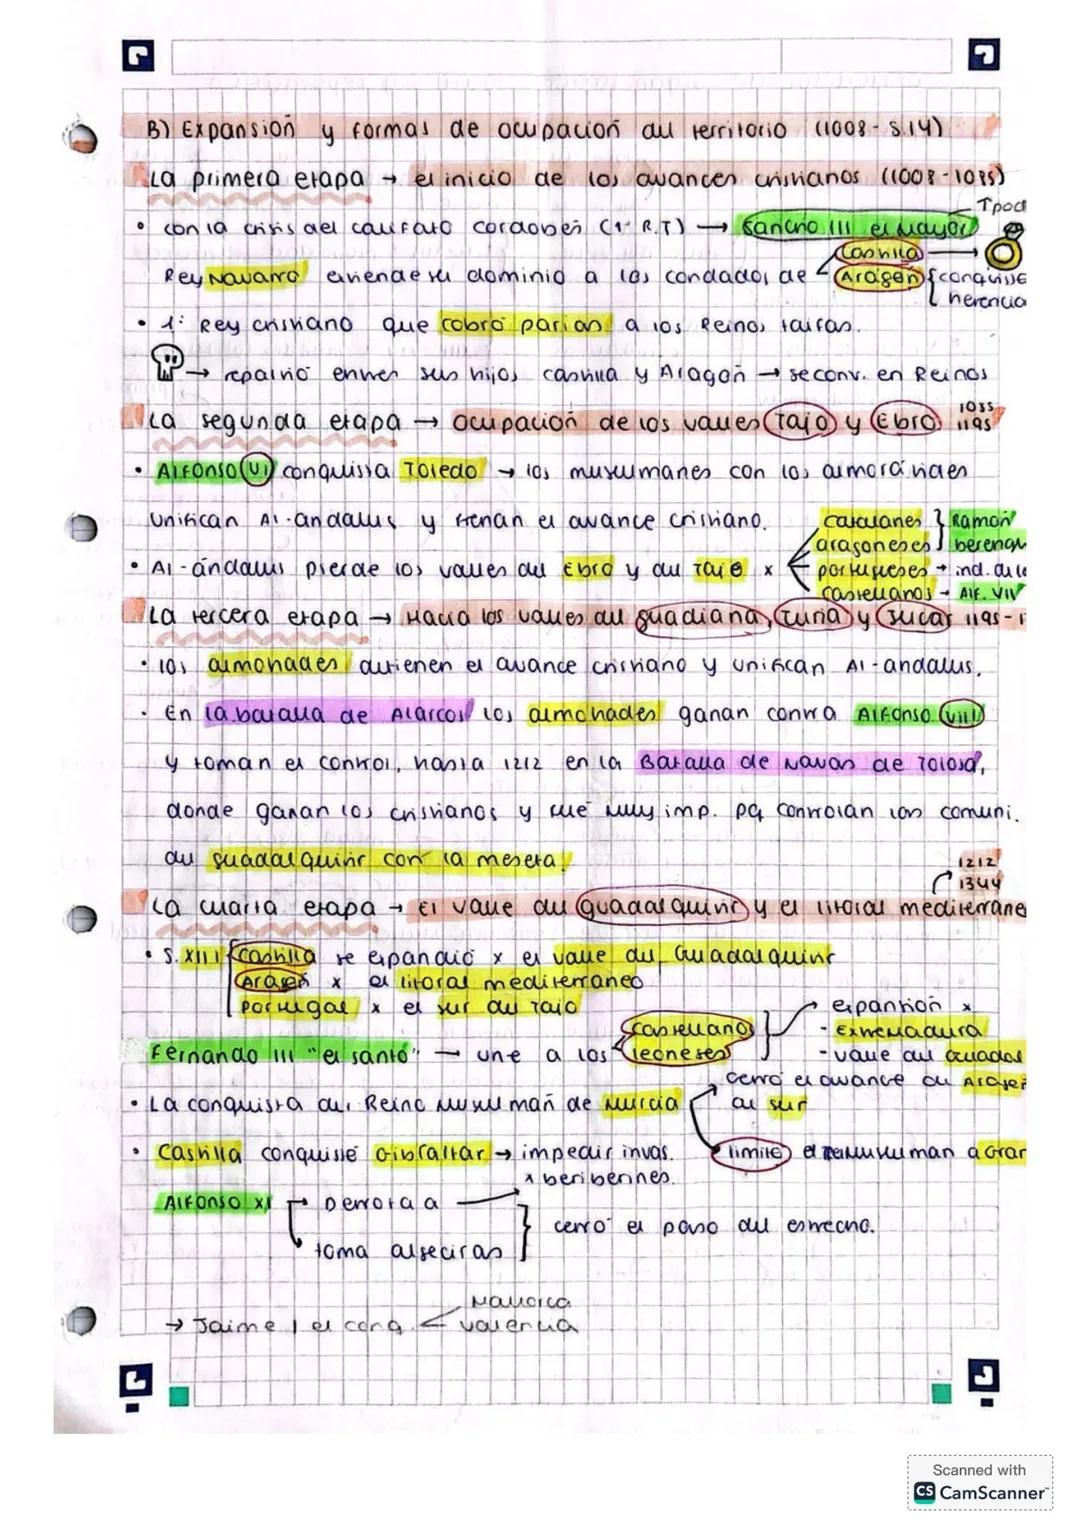 B) Expansión y formas de ocupación del territorio (1008 - S.14)
La primera etapa → el inicio de los avances cristianos (1008-1085)
• con la crisis del califato cordobés (1º R.T) → Sancho III el Mayor
Rey Navarro extiende su dominio a los condados de Castilla Aragón { conquista herencia
• 1º Rey cristiano que cobró parias a los Reinos taifas.
→ repartió entre sus hijos Castilla y Aragón → se conv. en Reinos
La segunda etapa → Ocupación de los valles Tajo y Ebro 1085 1195
• Alfonso VI conquista Toledo → los musulmanes con los almorávides
Unifican Al-andalus y frenan el avance cristiano.
• Al-ándalus pierde los valles del Ebro y del Tajo x
catalanes
aragoneses } Ramón berengu
portugueses → ind. de le
castellanos → Alf. VII
La tercera etapa → Hacia los valles del guadiana, Turia y Jucar 1195-1
• los almohades detienen el avance cristiano y unifican Al-andalus.
• En la batalla de Alarcos los almohades ganan contra Alfonso VIII
y toman el control, hasta 1212 en la Batalla de Navas de Tolosa,
donde ganan los cristianos y fue muy imp. pq controlan las comuni.
del guadalquivir con la meseta.
1212
1344
La cuarta etapa → El valle del Guadalquivir y el litoral mediterrane
• S. XIII { Castilla se expandió x el valle del Guadalquivir
Aragón x el litoral mediterraneo
Portugal x el sur del Tajo
Fernando III "el santo" → une a los castellanos leoneses }
expansión x
- Extremadura
- valle del Guadal
• La conquista del Reino Musulmán de Murcia
cerró el avance de Arage
al sur
limitó el musulman a Gran
• Castilla conquistó Gibraltar → impedir invas.
x beriberines.
Alfonso XI
Derrota a
toma algeciras } cerró el paso del estrecho.
→ Jaime I el conq.
Mallorca
valencia
Scanned with
CS CamScanner